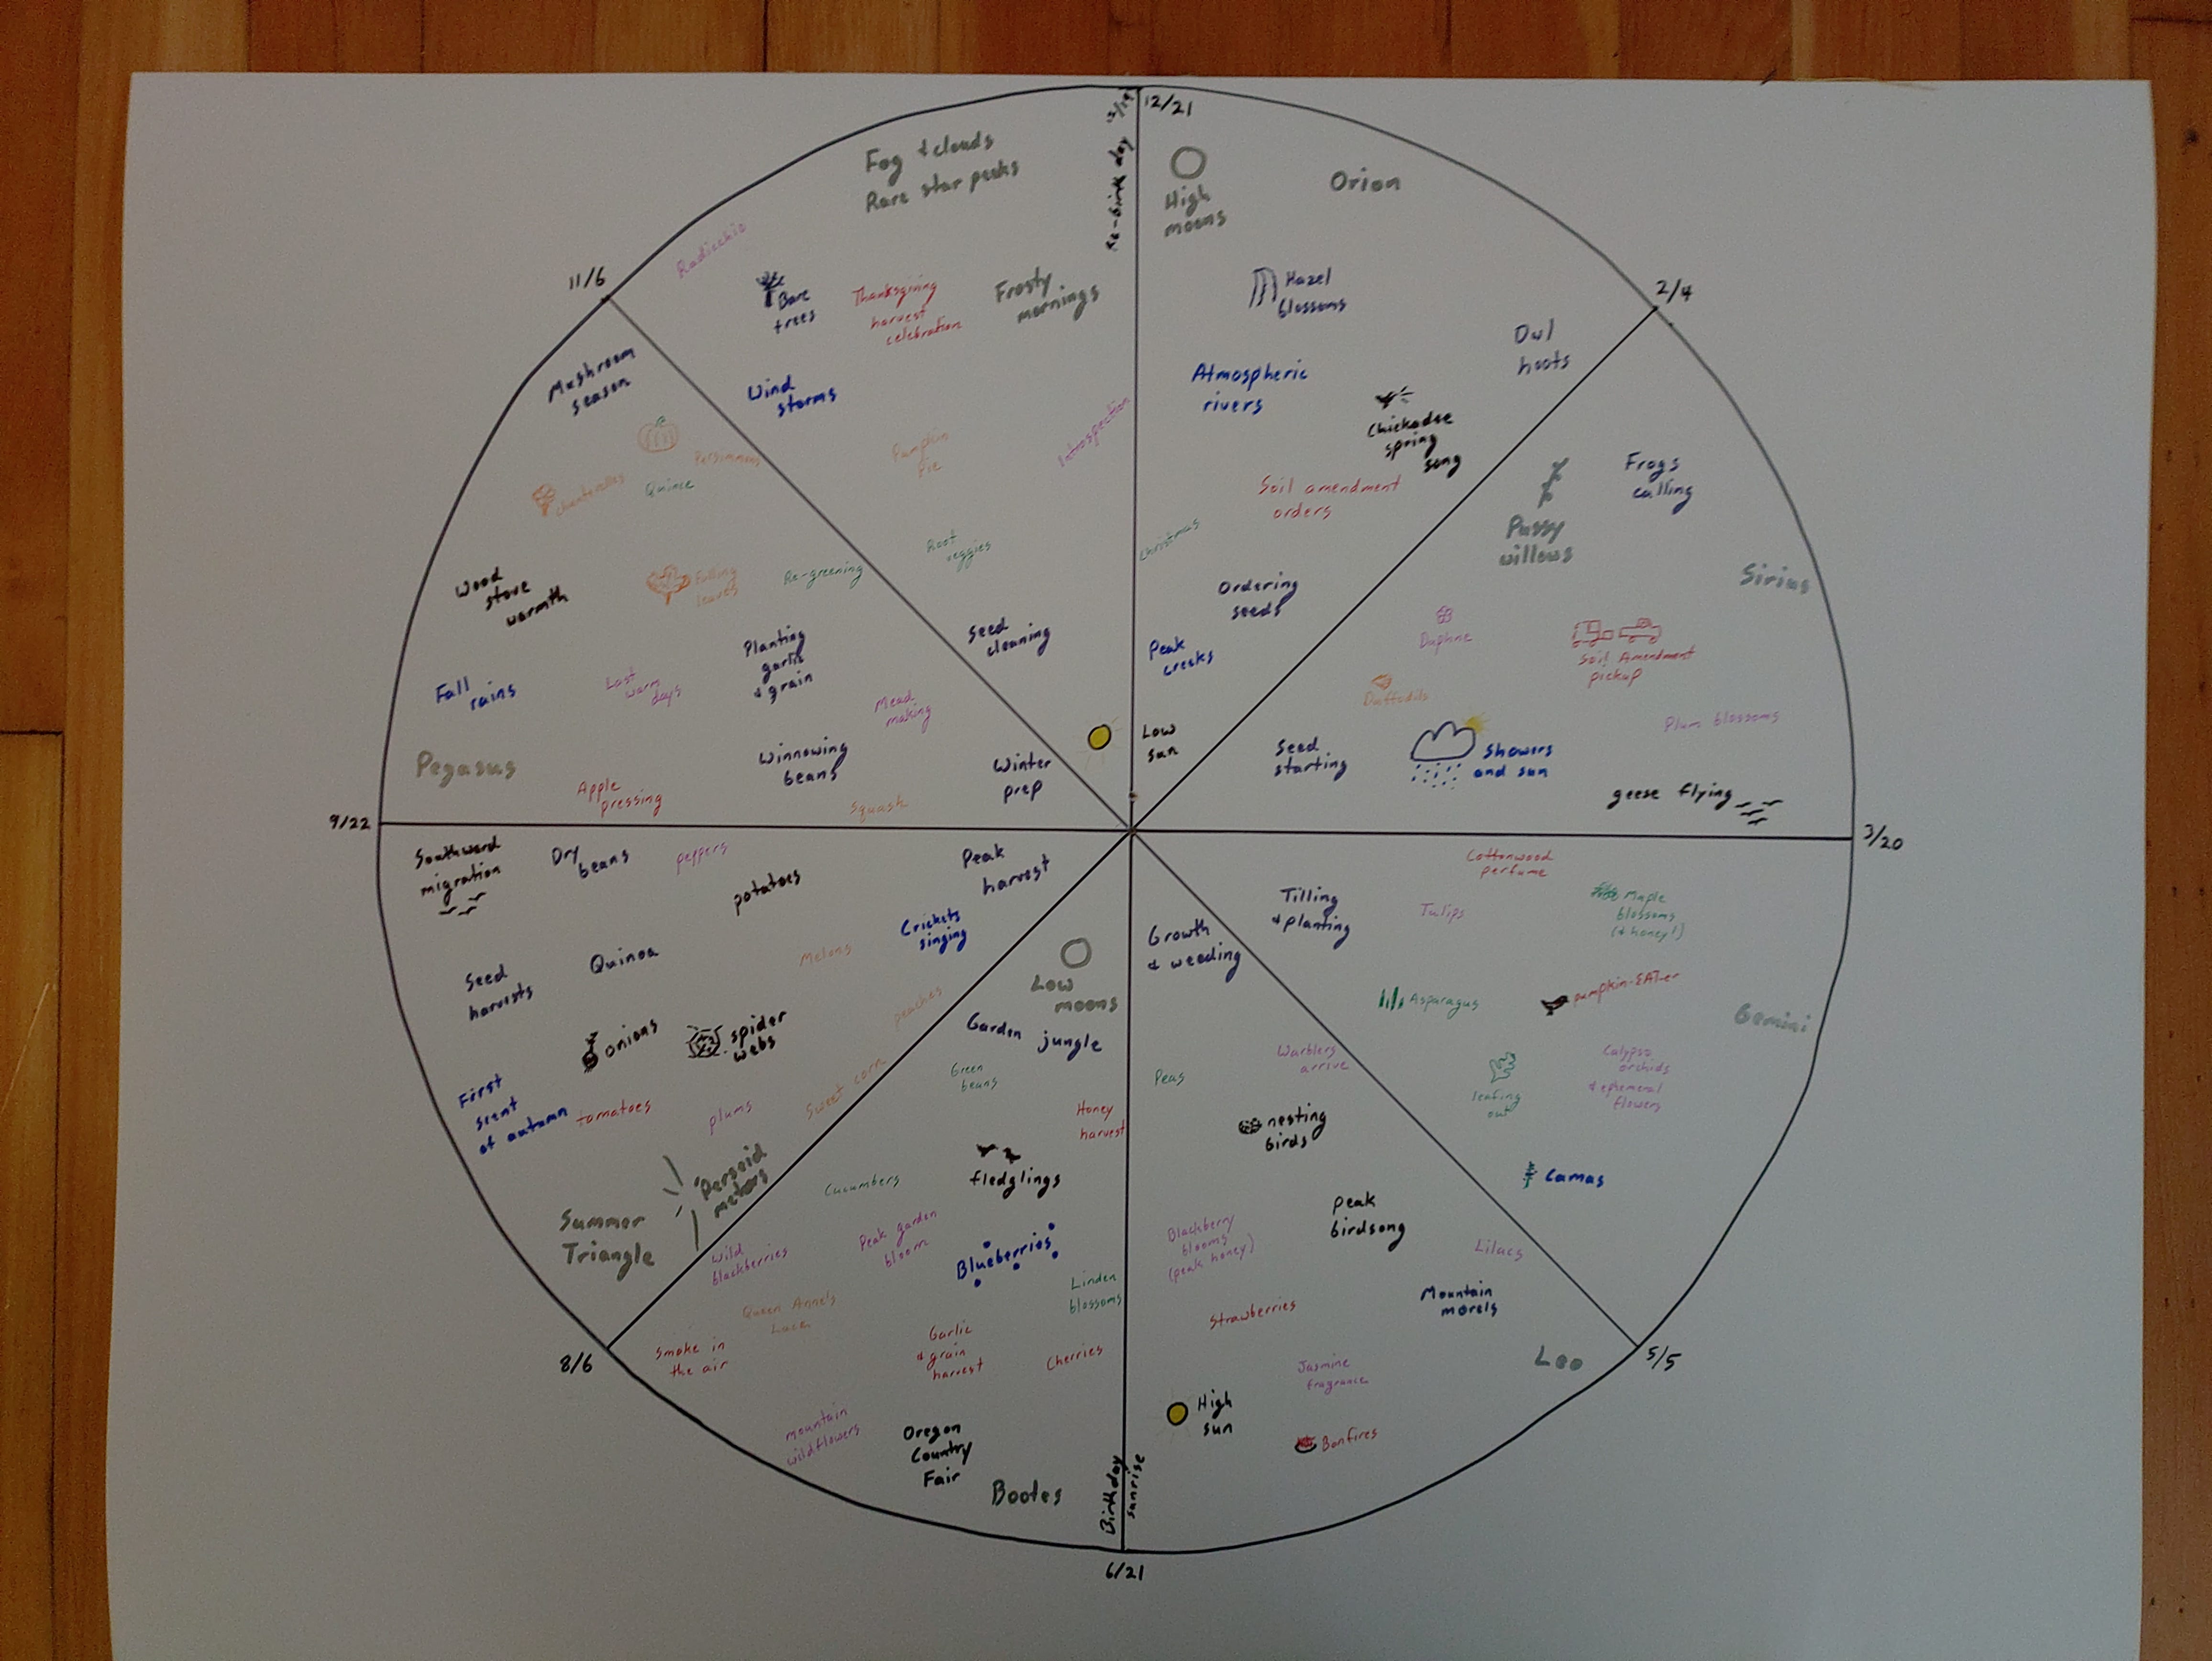 12/21
High
moons
Orion
Hazel
blossoms
Atmospheric
rivers
Owl
hoots
Chickadee
spring
song
Soil amendment
orders
Christmas
Ordering
seeds
Peak
creeks
Low
sun
2/4
Frogs
calling
Pussy
willows
Sirius
Daphne
Soil Amendment
pickup
Daffodils
Plum blossoms
Seed
starting
Showers
and sun
geese flying
3/20
Cottonwood
perfume
Tilling
& planting
Tulips
Maple
blossoms
(& honey!)
Asparagus
pumpkin-EATer
Gemini
Calypso
orchids
& ephemeral
flowers
leafing
out
Camas
5/5
Growth
& weeding
Warblers
arrive
Peas
nesting
birds
Peak
birdsong
Blackberry
blooms
(peak honey)
Lilacs
Mountain
morels
Strawberries
Leo
Jasmine
fragrance
High
sun
Bonfires
Birthday
sunrise
6/21
Low
moons
Garden jungle
Green
beans
Honey
harvest
fledglings
Cucumbers
Peak garden
bloom
Wild
blackberries
Blueberries
Linden
blossoms
Queen Anne's
Lace
Smoke in
the air
Garlic
& grain
harvest
Cherries
mountain
wildflowers
Oregon
Country
Fair
Bootes
8/6
Peak
harvest
Southward
migration
Dry
beans
peppers
potatoes
Crickets
singing
Melons
Quinoa
Seed
harvests
peaches
onions
spider
webs
First
scent
of autumn
tomatoes
plums
Sweet corn
Perseid
meteors
Summer
Triangle
9/22
Mushroom
season
Persimmons
Chanterelles
Quince
Wood
stove
warmth
Falling
leaves
Re-greening
Planting
garlic
& grain
Fall
rains
Last
warm
days
Mead
making
Pegasus
Winnowing
beans
Apple
pressing
Squash
Winter
prep
11/6
Fog & clouds
Rare star peaks
Radicchio
Bare
trees
Thanksgiving
harvest
celebration
Frosty
mornings
Wind
storms
Pumpkin
Pie
Introspection
Root
veggies
Seed
cleaning
Re-birth day